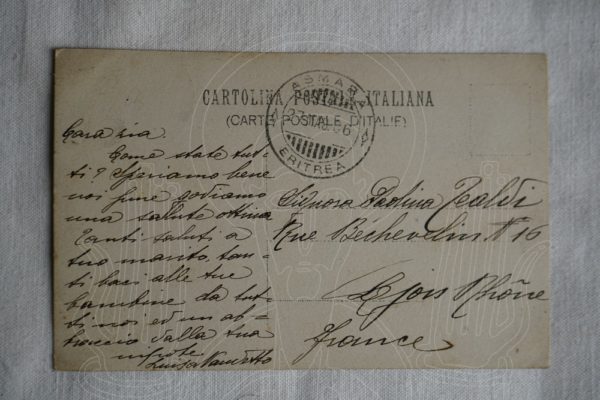 CARTOLINA POSTALE ITALIANA
(CARTE POSTALE D'ITALIE)
ASMARA
ERITREA
Cara zia.
Come state tut-
ti? Speriamo bene
noi pure godiamo
una salute ottima
Tanti saluti a
tuo marito, tan-
ti baci alle tue
bambine da tut-
ti noi ed un ab-
braccio dalla tua
nipote
Luisa
Signora Paolina Realdi
Rue Béchevelin N 16
Ljon Rhône
France